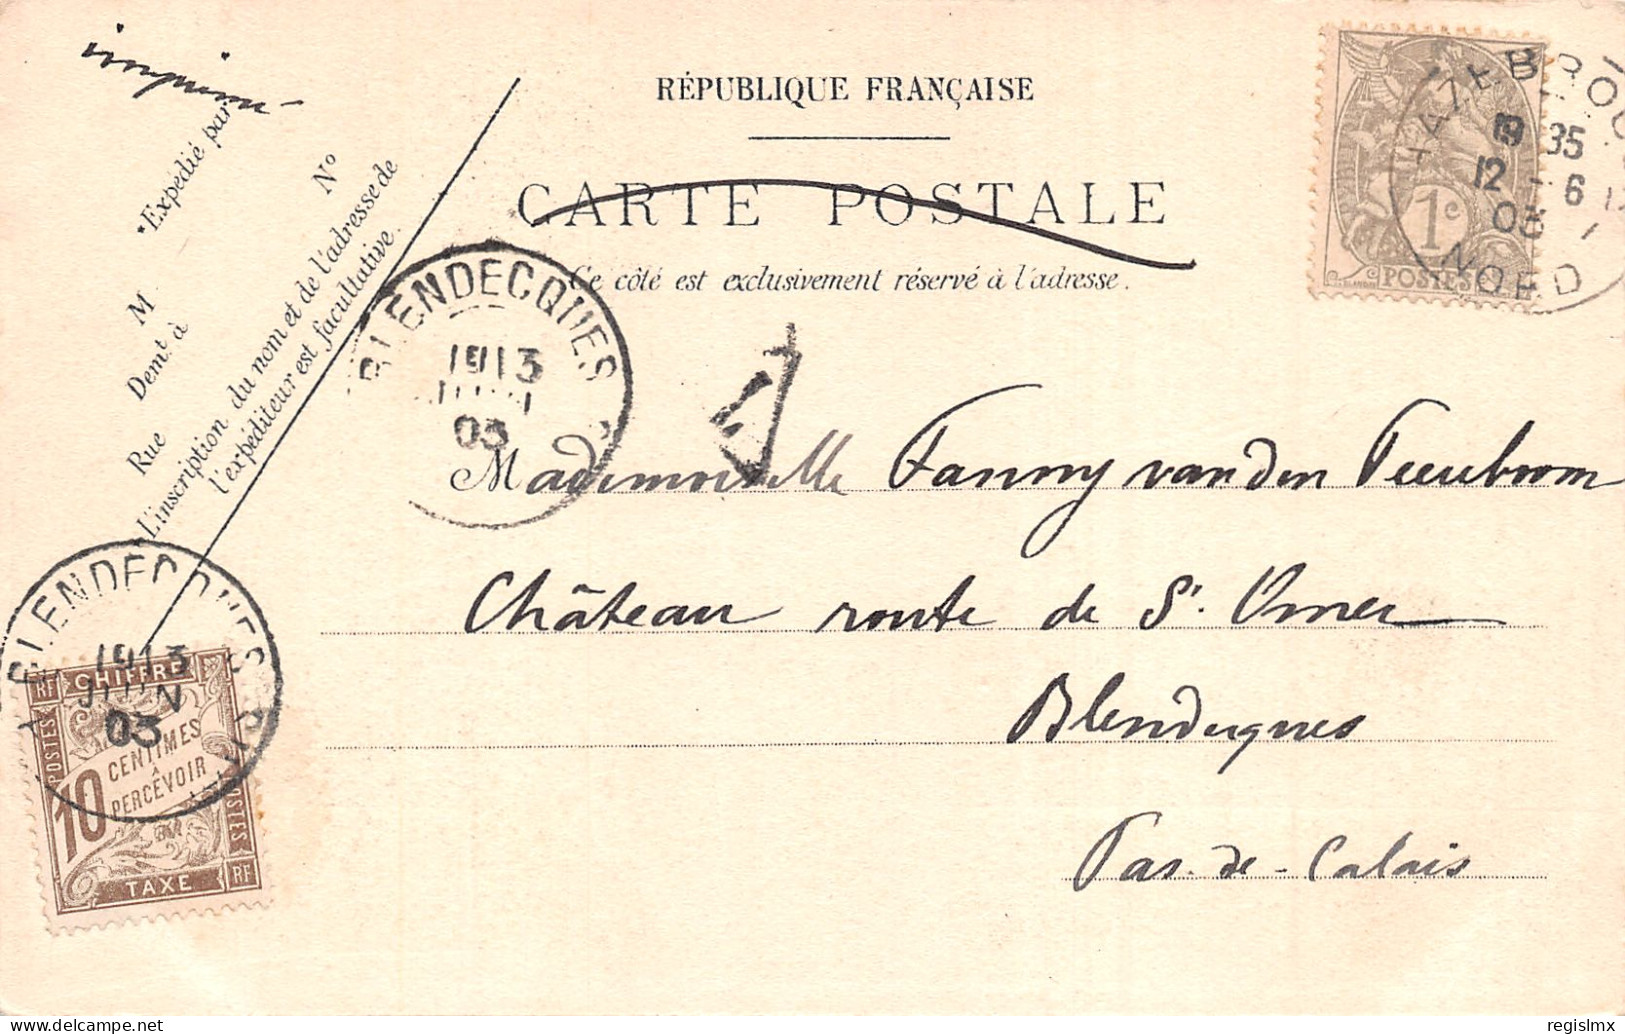 imprimé
RÉPUBLIQUE FRANÇAISE
CARTE POSTALE
Ce côté est exclusivement réservé à l'adresse.
Expédié par
M
Demt. à
Rue
No
L'inscription du nom et de l'adresse de
l'expéditeur est facultative.
HAZEBROUCK
12 - 6
03
NORD
1c
POSTES
BLENDECQUES
1913
03
T
Mademoiselle Fanny van den
Château route de St. Omer
Blendecques
Pas-de-Calais
BLENDECQUES
1913
JUIN
03
RF CHIFFRE
POSTES
10
CENTIMES
À
PERCEVOIR
POSTES
TAXE RF
regislmx